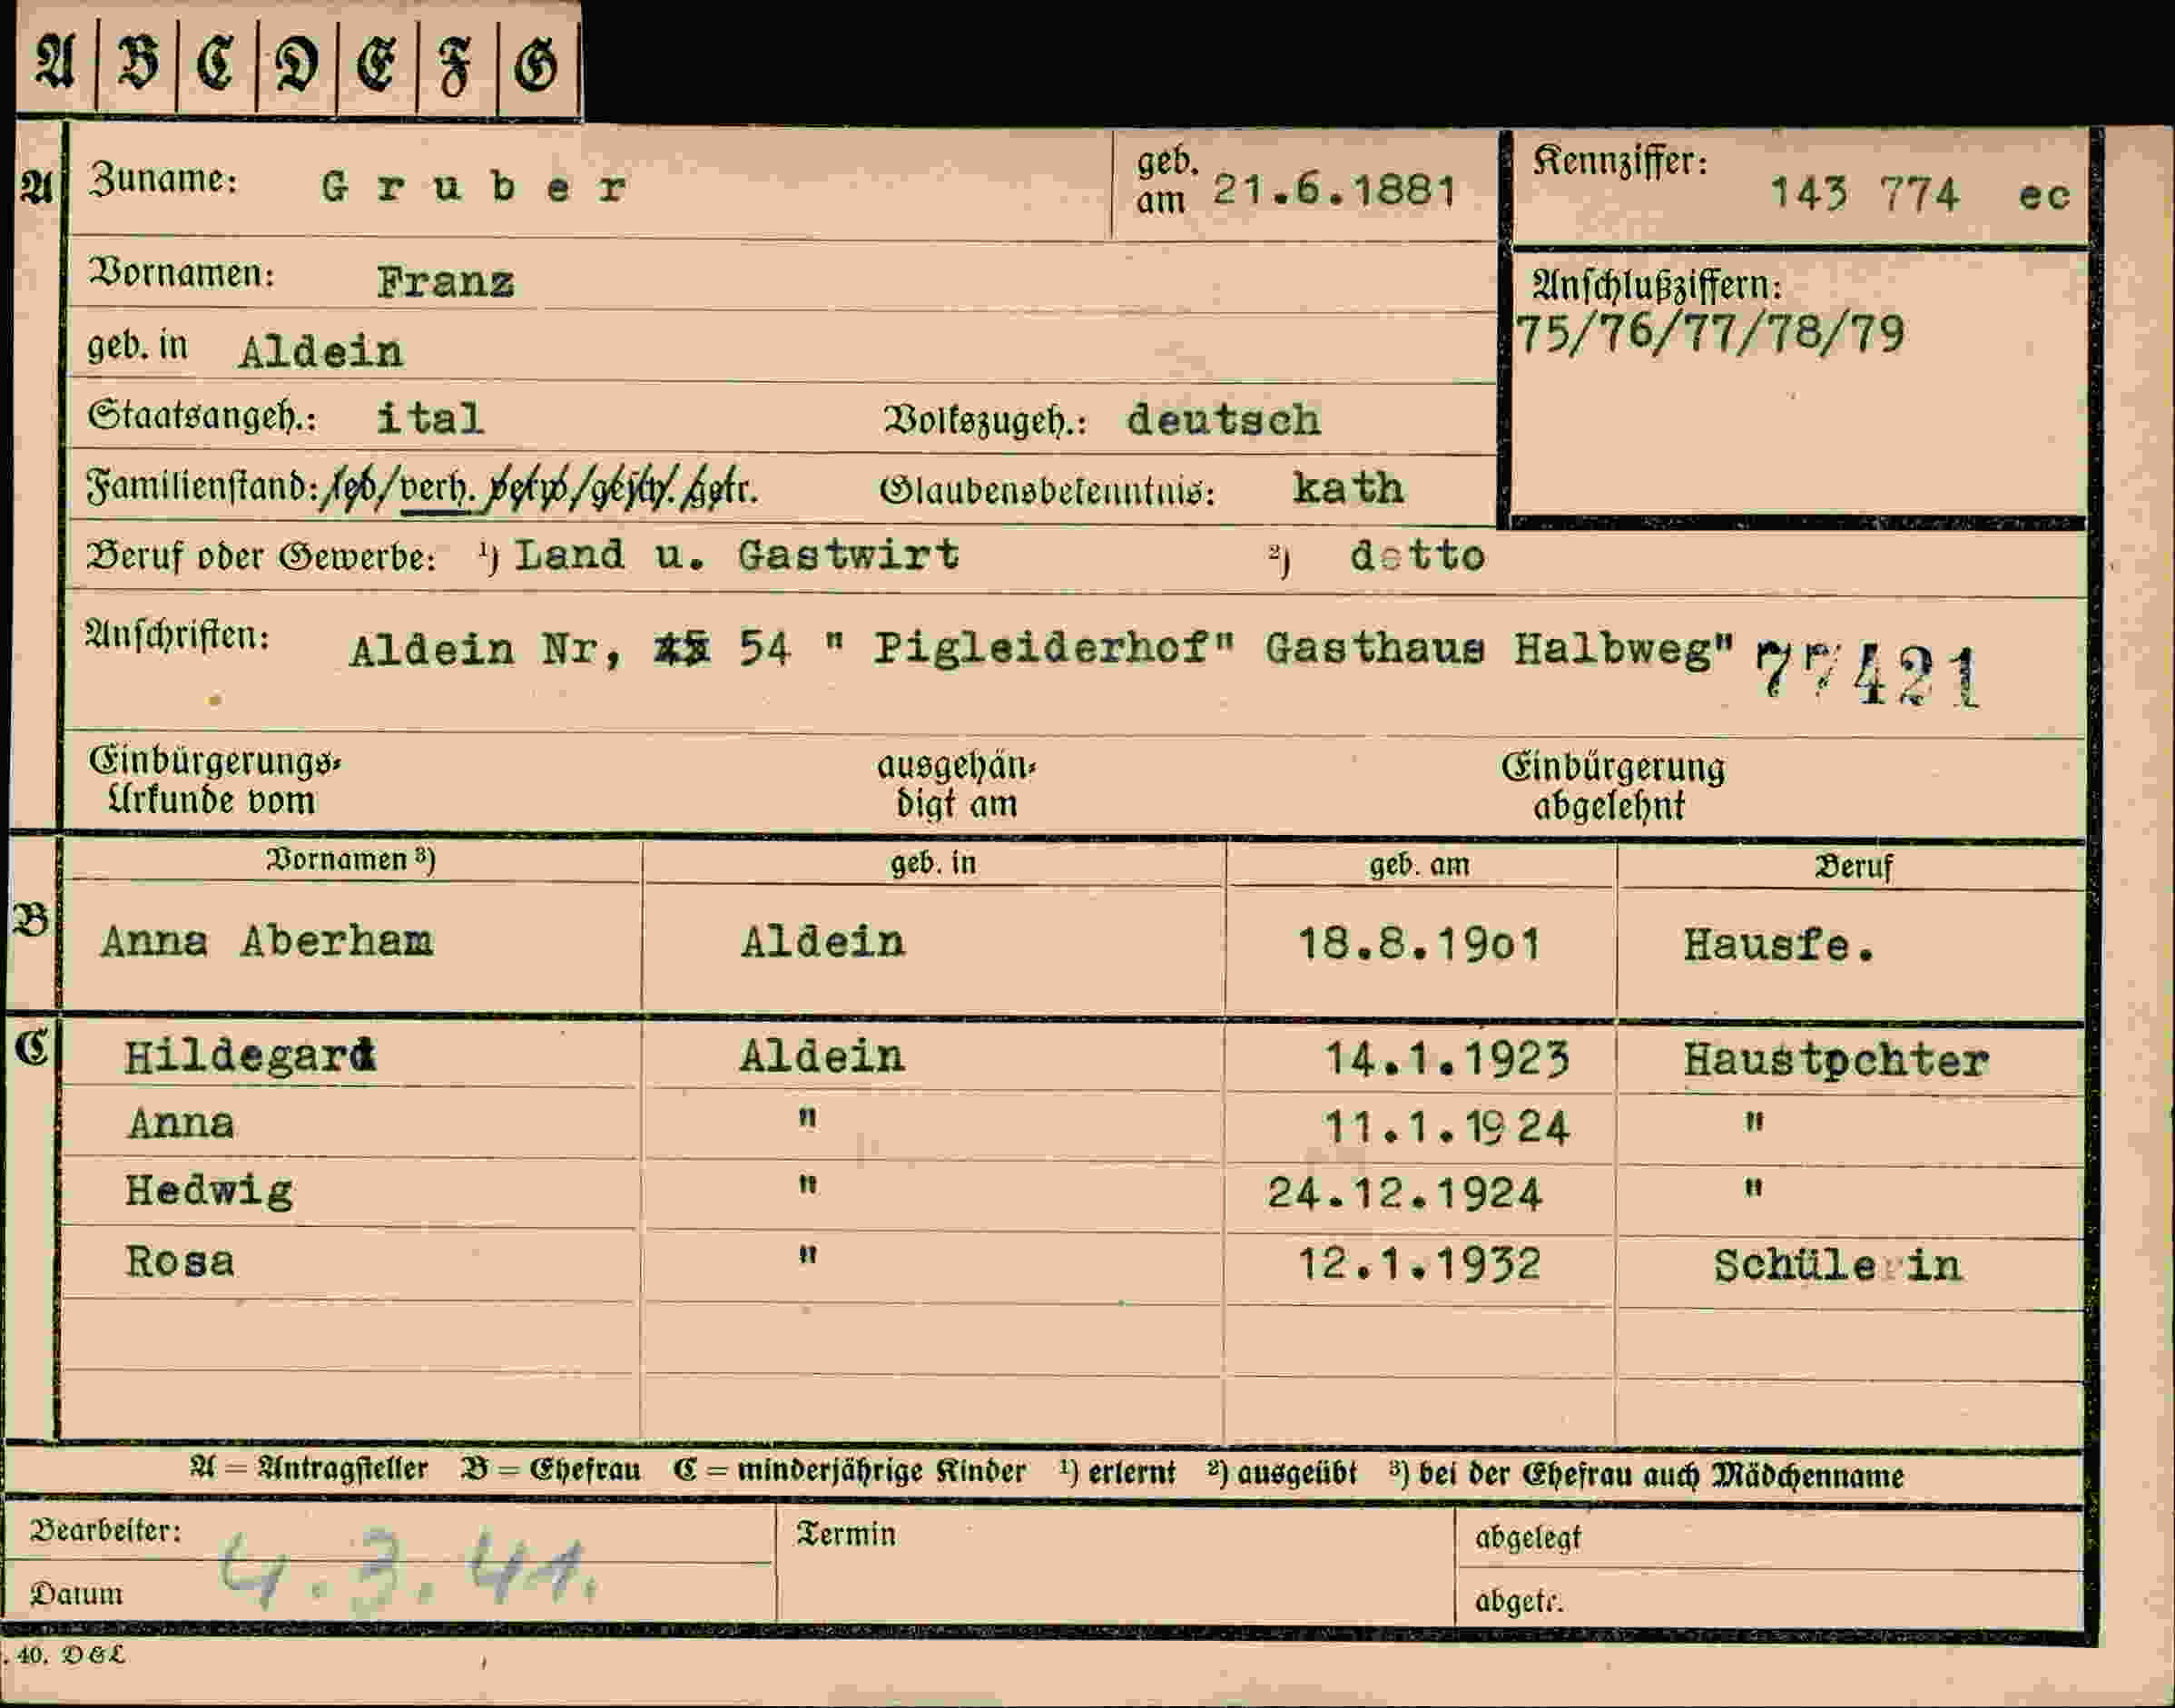 A B C D E F G
A Zuname: Gruber geb. am 21.6.1881 Kennziffer: 143 774 ec
Vornamen: Franz Anschlußziffern:
geb. in Aldein 75/76/77/78/79
Staatsangeh.: ital Volkszugeh.: deutsch
Familienstand: led/verh. verw/gesch./getr. Glaubensbekenntnis: kath
Beruf oder Gewerbe: ¹) Land u. Gastwirt ²) detto
Anschriften: Aldein Nr, 54 " Pigleiderhof" Gasthaus Halbweg" 77421
Einbürgerungs- ausgehän- Einbürgerung
Urkunde vom digt am abgelehnt
Vornamen ³) geb. in geb. am Beruf
B Anna Aberham Aldein 18.8.19o1 Hausfe.
C Hildegard Aldein 14.1.1923 Haustpchter
Anna " 11.1.1924 "
Hedwig " 24.12.1924 "
Rosa " 12.1.1932 Schülerin
A = Antragsteller B = Ehefrau C = minderjährige Kinder ¹) erlernt ²) ausgeübt ³) bei der Ehefrau auch Mädchenname
Bearbeiter: Termin abgelegt
Datum 4.3.41. abgetr.
. 40. D&L